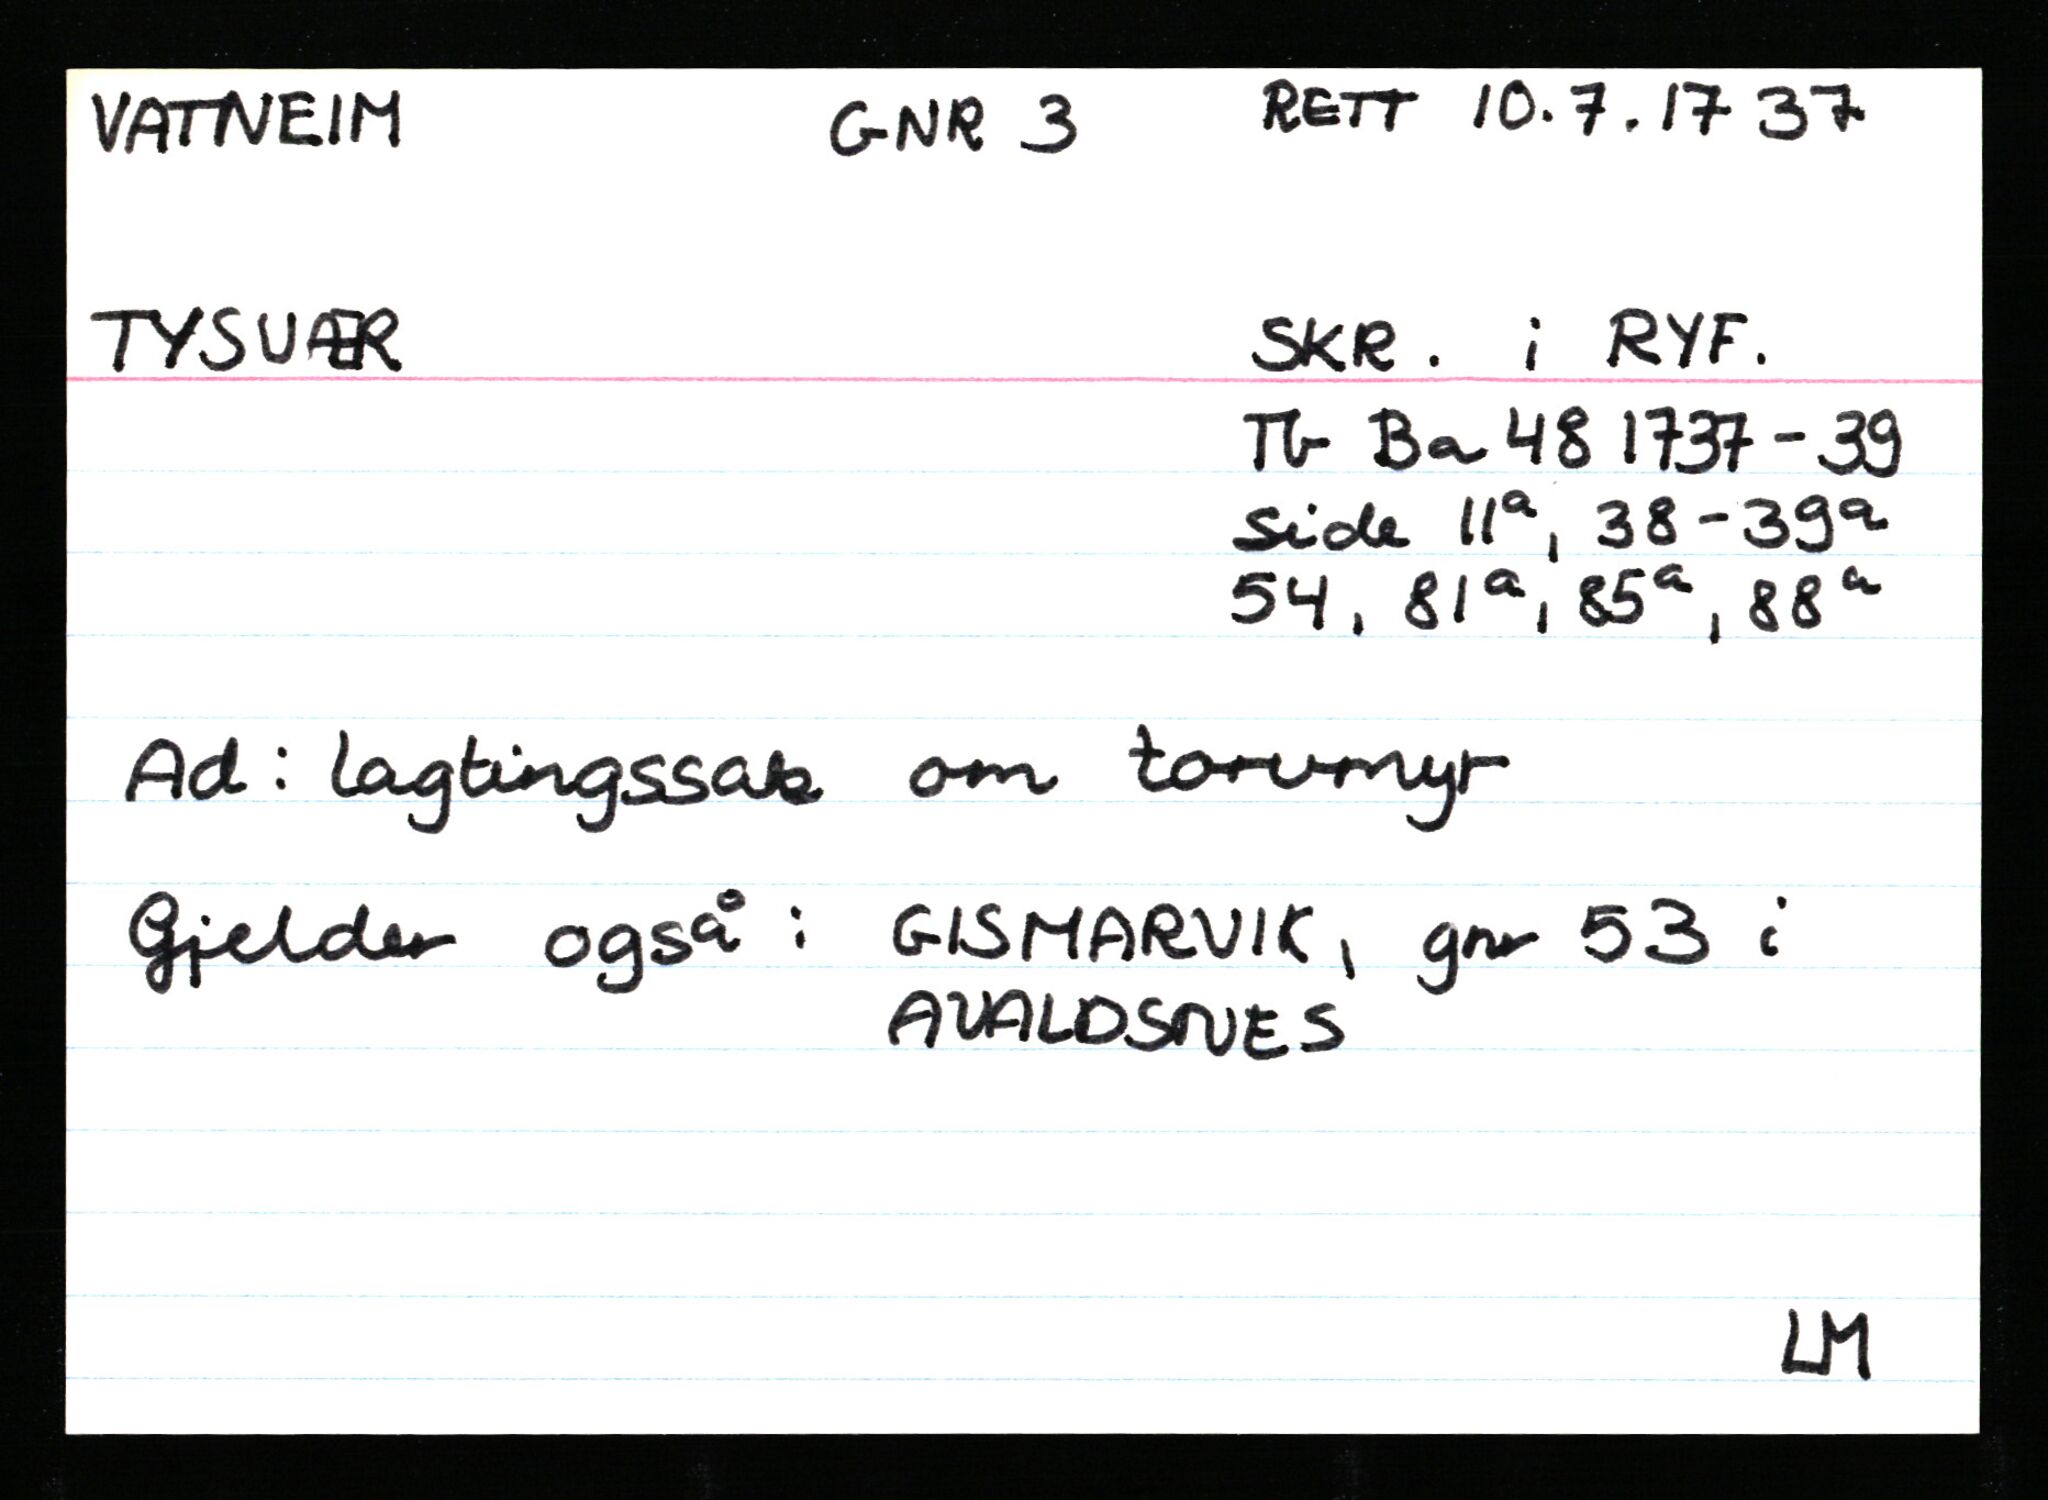 VATNEIM GNR 3 RETT 10.7.1737
TYSVÆR SKR. i RYF.
Tb Ba 48 1737-39
side 11a, 38-39a
54, 81a, 85a, 88a
Ad: lagtingssak om torvmyr
Gjelder også: GISMARVIK, gnr 53 i
AVALDSNES
LM